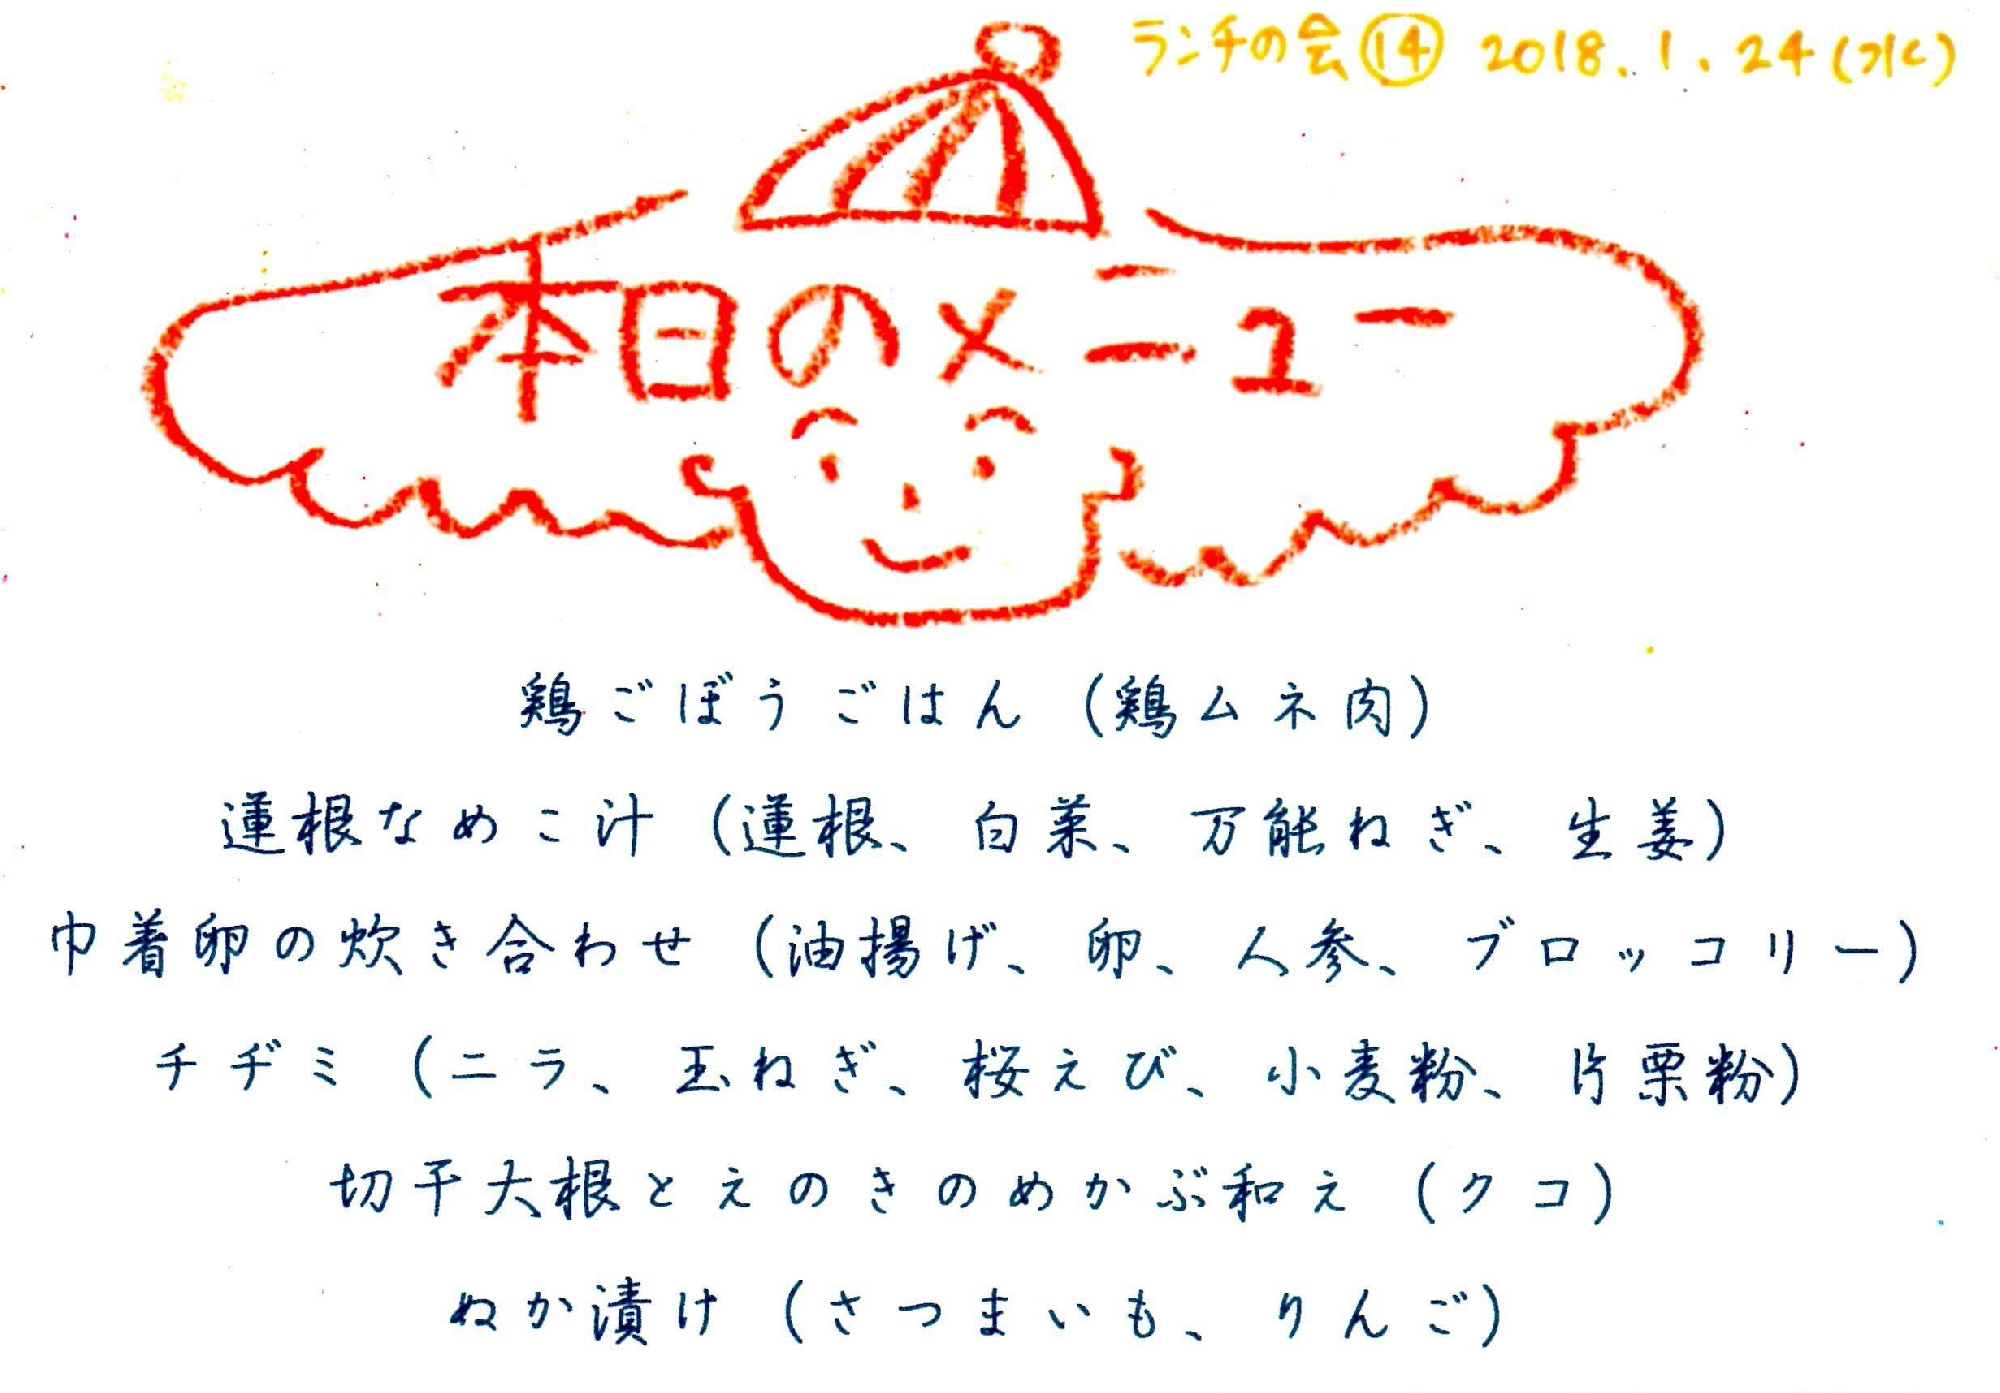 ランチの会⑭ 2018.1.24(水)
本日のメニュー
鶏ごぼうごはん(鶏ムネ肉)
蓮根なめこ汁(蓮根、白菜、万能ねぎ、生姜)
巾着卵の炊き合わせ(油揚げ、卵、人参、ブロッコリー)
チヂミ(ニラ、玉ねぎ、桜えび、小麦粉、片栗粉)
切干大根とえのきのめかぶ和え(クコ)
ぬか漬け(さつまいも、りんご)